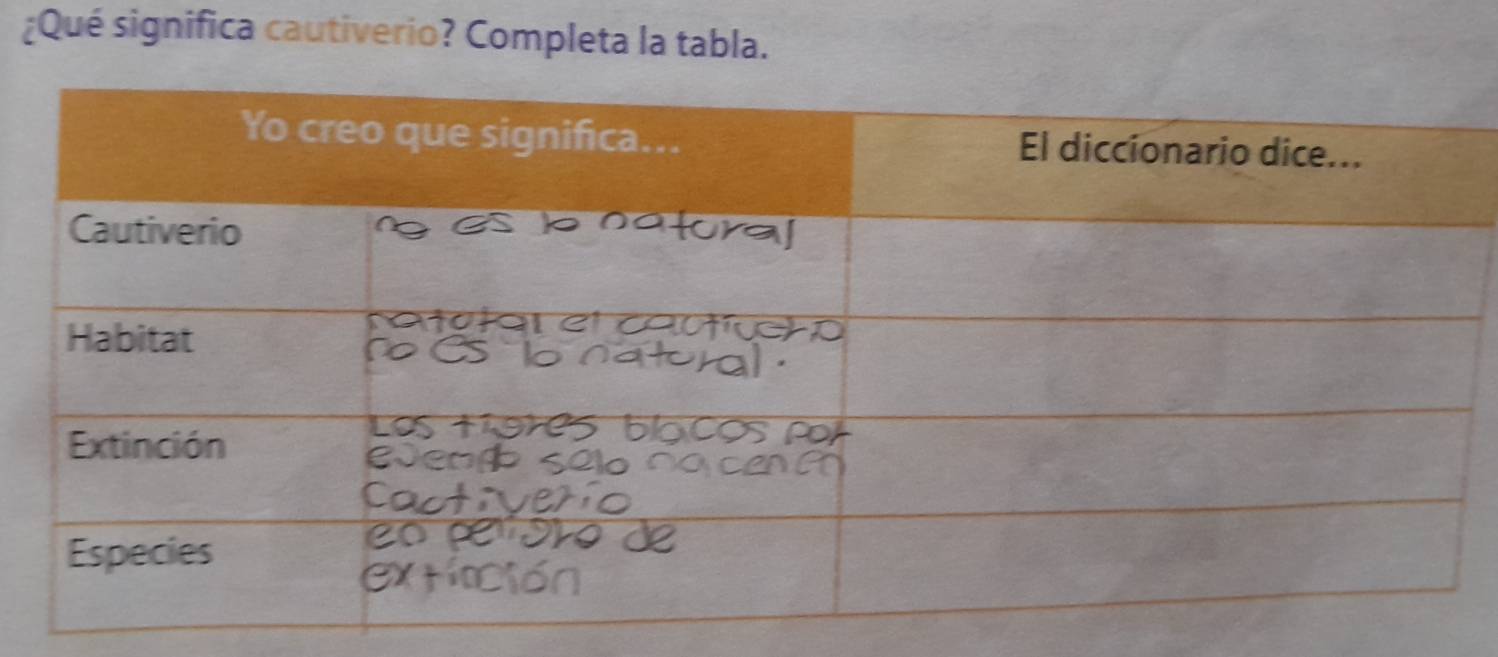 ¿Qué significa cautiverio? Completa la tabla.
Yo creo que significa...
El diccionario dice...
Cautiverio
no es lo natural
Habitat
natotal el cautiverio
no es lo natural.
Extinción
Los tigres blacos por
ejemplo solo nacen en
cactiverio
Especies
en peligro de
extinción